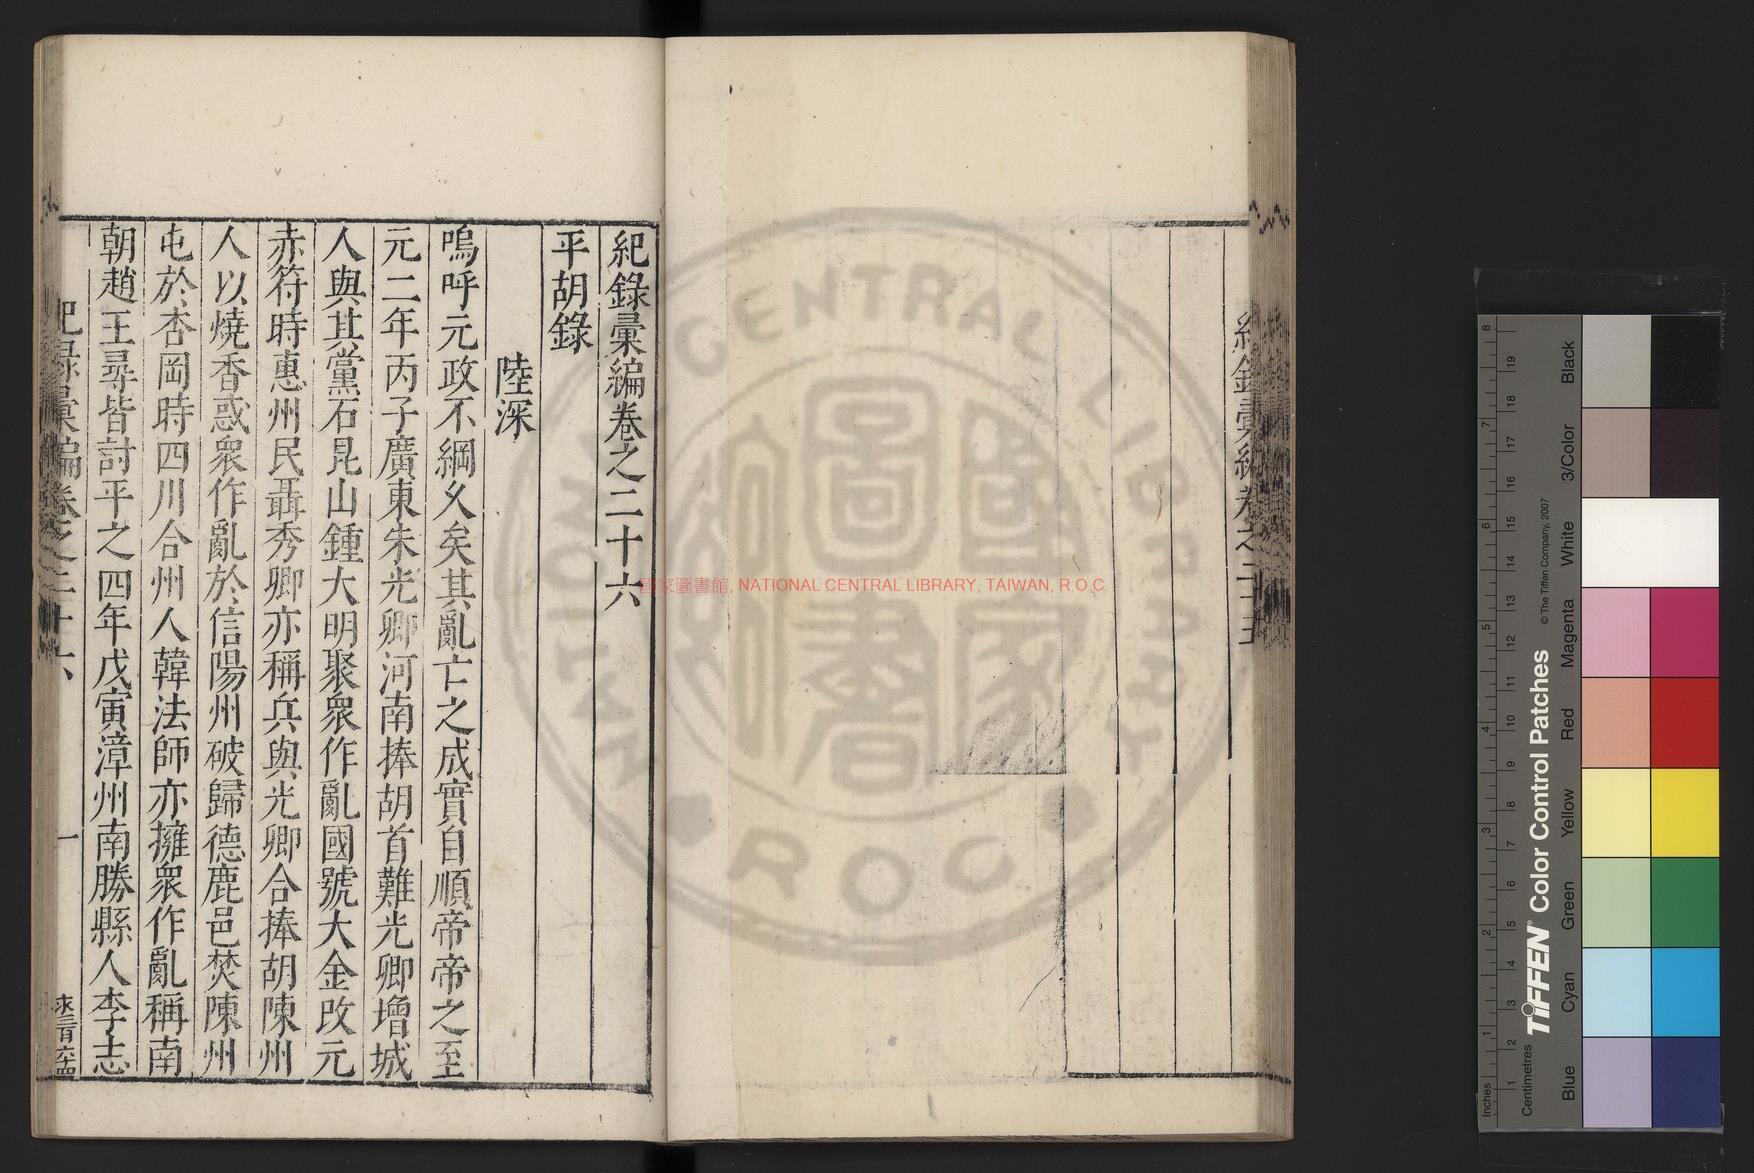 紀錄彙編卷之二十六
平胡錄
陸深
嗚呼元政不綱久矣其亂亡之成實自順帝帝之至
元二年丙子廣東朱光卿河南捧胡首難光卿增城
人與其黨石昆山鍾大明聚衆作亂國號大金改元
赤符時惠州民聶秀卿亦稱兵與光卿合捧胡陳州
人以燒香惑衆作亂於信陽州破歸德鹿邑焚陳州
屯於杏岡時四川合州人韓法師亦擁衆作亂稱南
朝趙王尋皆討平之四年戊寅漳州南勝縣人李志
紀錄彙編卷之二十六
一
紀錄彙編卷之二十五
國家圖書館, NATIONAL CENTRAL LIBRARY, TAIWAN, R.O.C
NATIONAL CENTRAL LIBRARY
ROC
國家圖書館
TIFFEN® Color Control Patches
© The Tiffen Company, 2007
Centimetres
Inches
Blue
Cyan
Green
Yellow
Red
Magenta
White
3/Color
Black